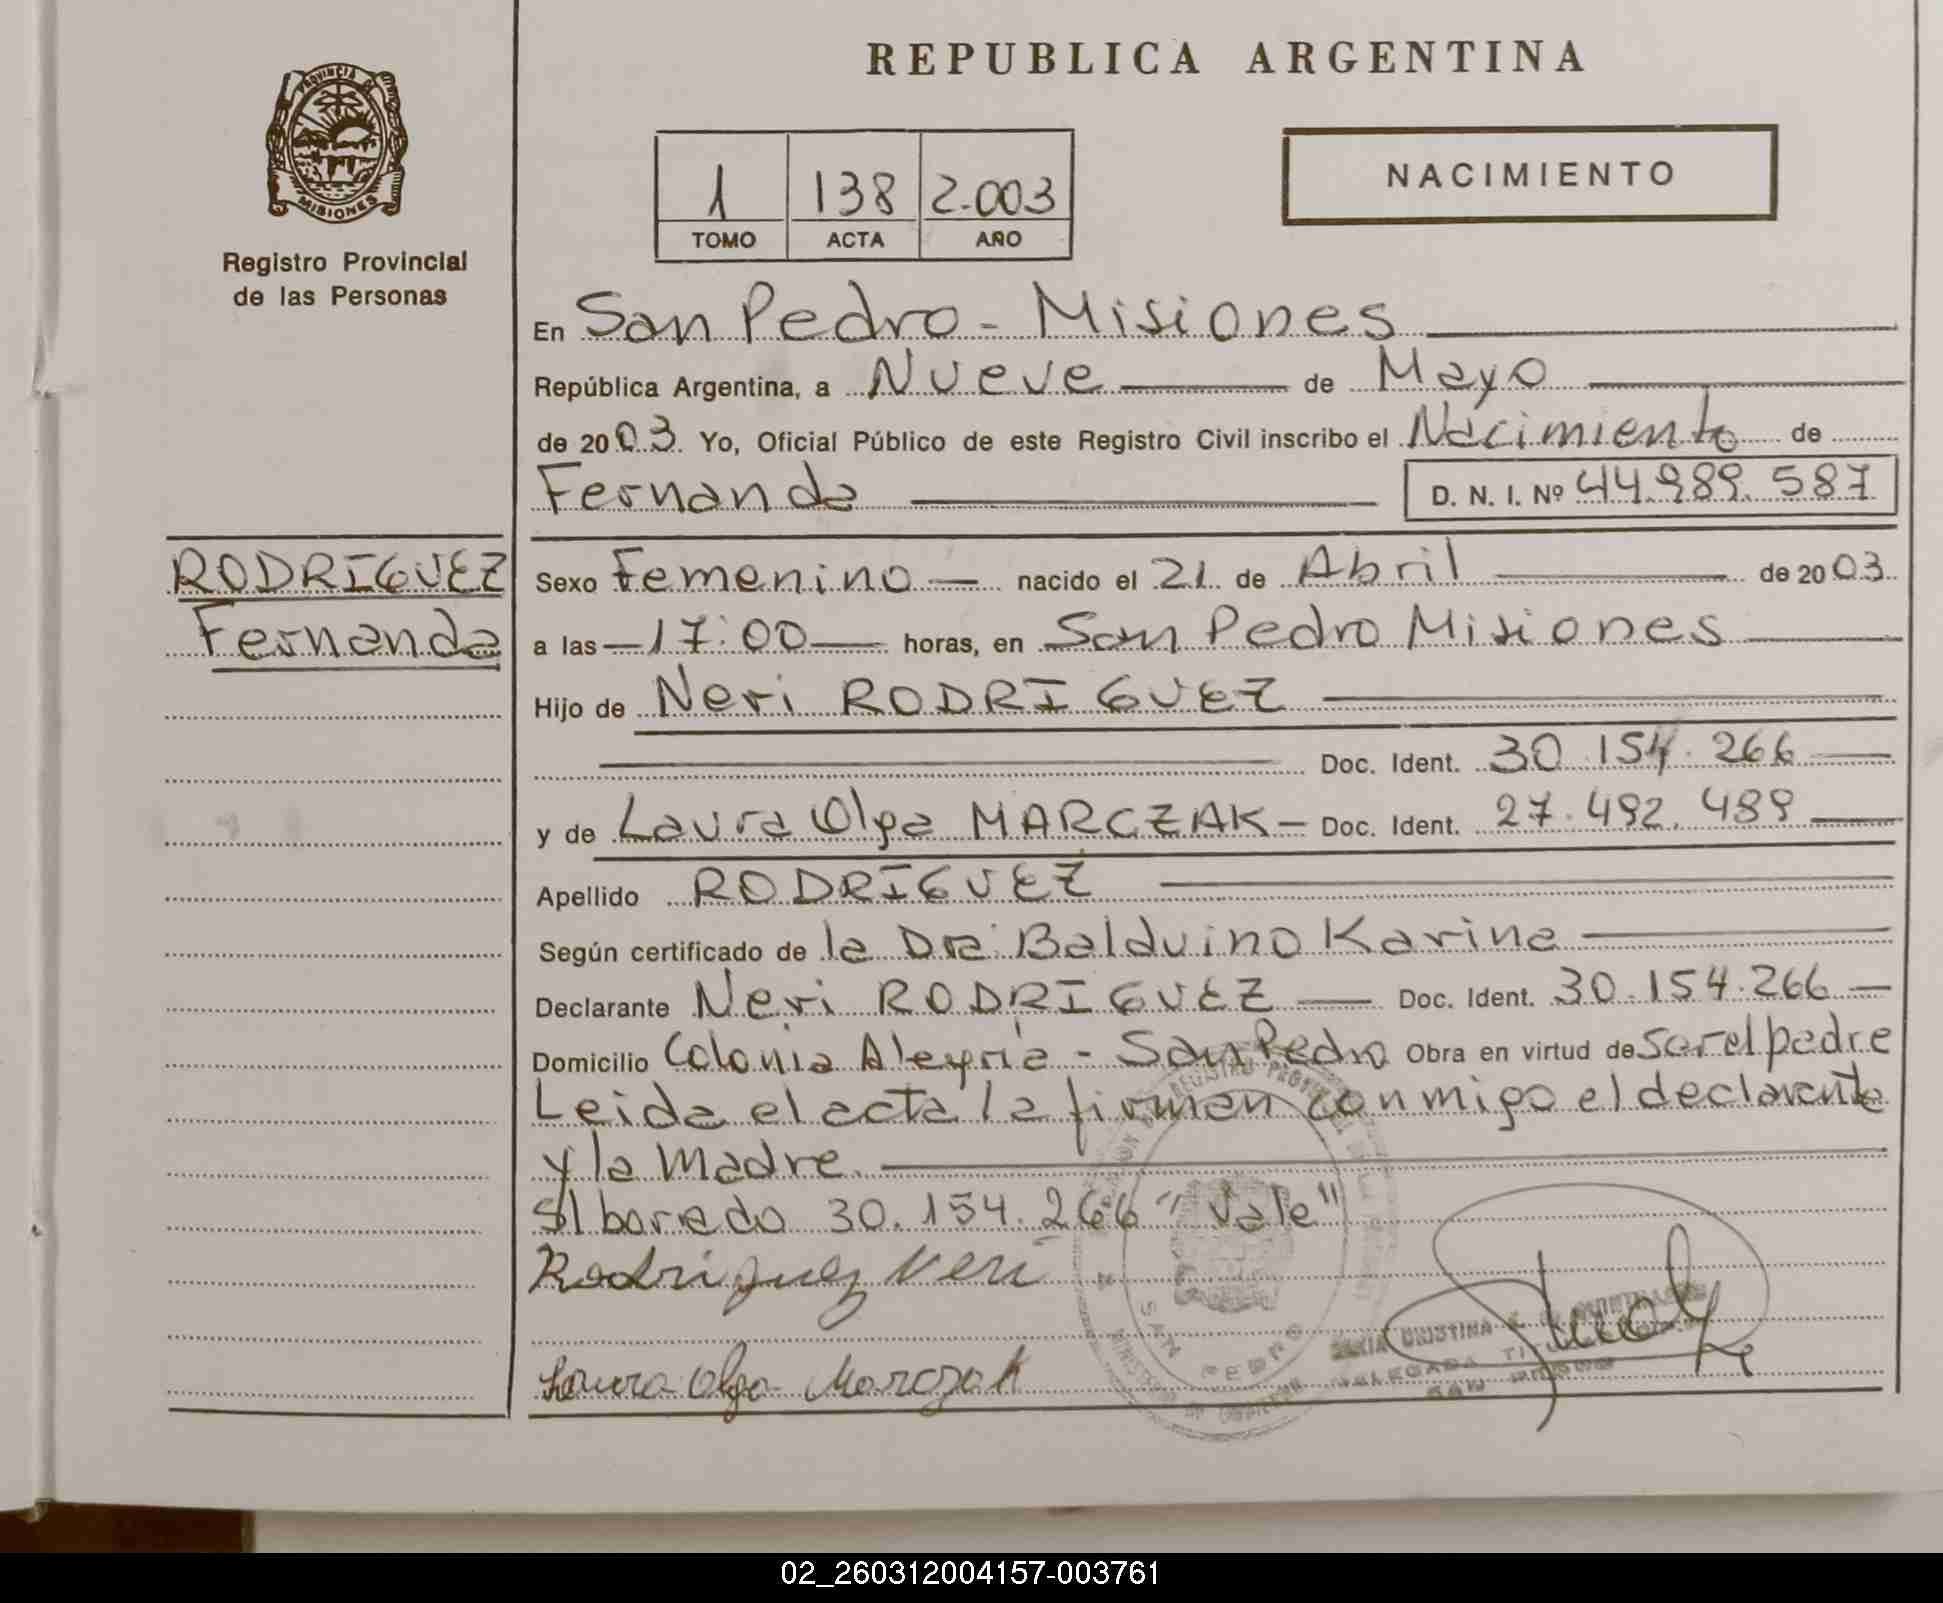 REPUBLICA ARGENTINA
PROVINCIA DE
MISIONES
Registro Provincial
de las Personas
1 138 2.003
TOMO ACTA AÑO
NACIMIENTO
En San Pedro - Misiones
República Argentina, a Nueve de Mayo
de 2003. Yo, Oficial Público de este Registro Civil inscribo el Nacimiento de
Fernanda D. N. I. Nº 44.989.587
RODRIGUEZ
Fernanda
Sexo Femenino nacido el 21 de Abril de 2003
a las 17:00 horas, en San Pedro Misiones
Hijo de Neri RODRIGUEZ
Doc. Ident. 30.154.266
y de Laura Olga MARCZAK Doc. Ident. 27.492.489
Apellido RODRIGUEZ
Según certificado de la Dra Balduino Karina
Declarante Neri RODRIGUEZ Doc. Ident. 30.154.266
Domicilio Colonia Alegría - San Pedro Obra en virtud de ser el padre
Leida el acta la firman conmigo el declarante
y la Madre.
S/ borrado 30.154.266 "Vale"
Rodriguez Neri
Laura Olga Marczak
SAN PEDRO
CRISTINA
DELEGADA TITULAR
SAN PEDRO
02_260312004157-003761